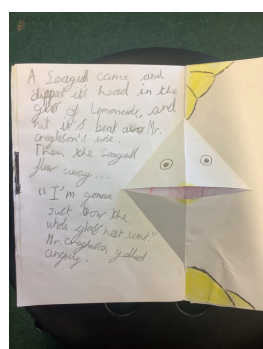 A Seagull came and
dipped it's head in the
glass of Lemonade, and
hit it's beak across Mr.
Creghson's nose.
Then the Seagull
flew away...
"I'm gonna
just throw the
whole glass next time."
Mr. Creghson yelled
angrily.